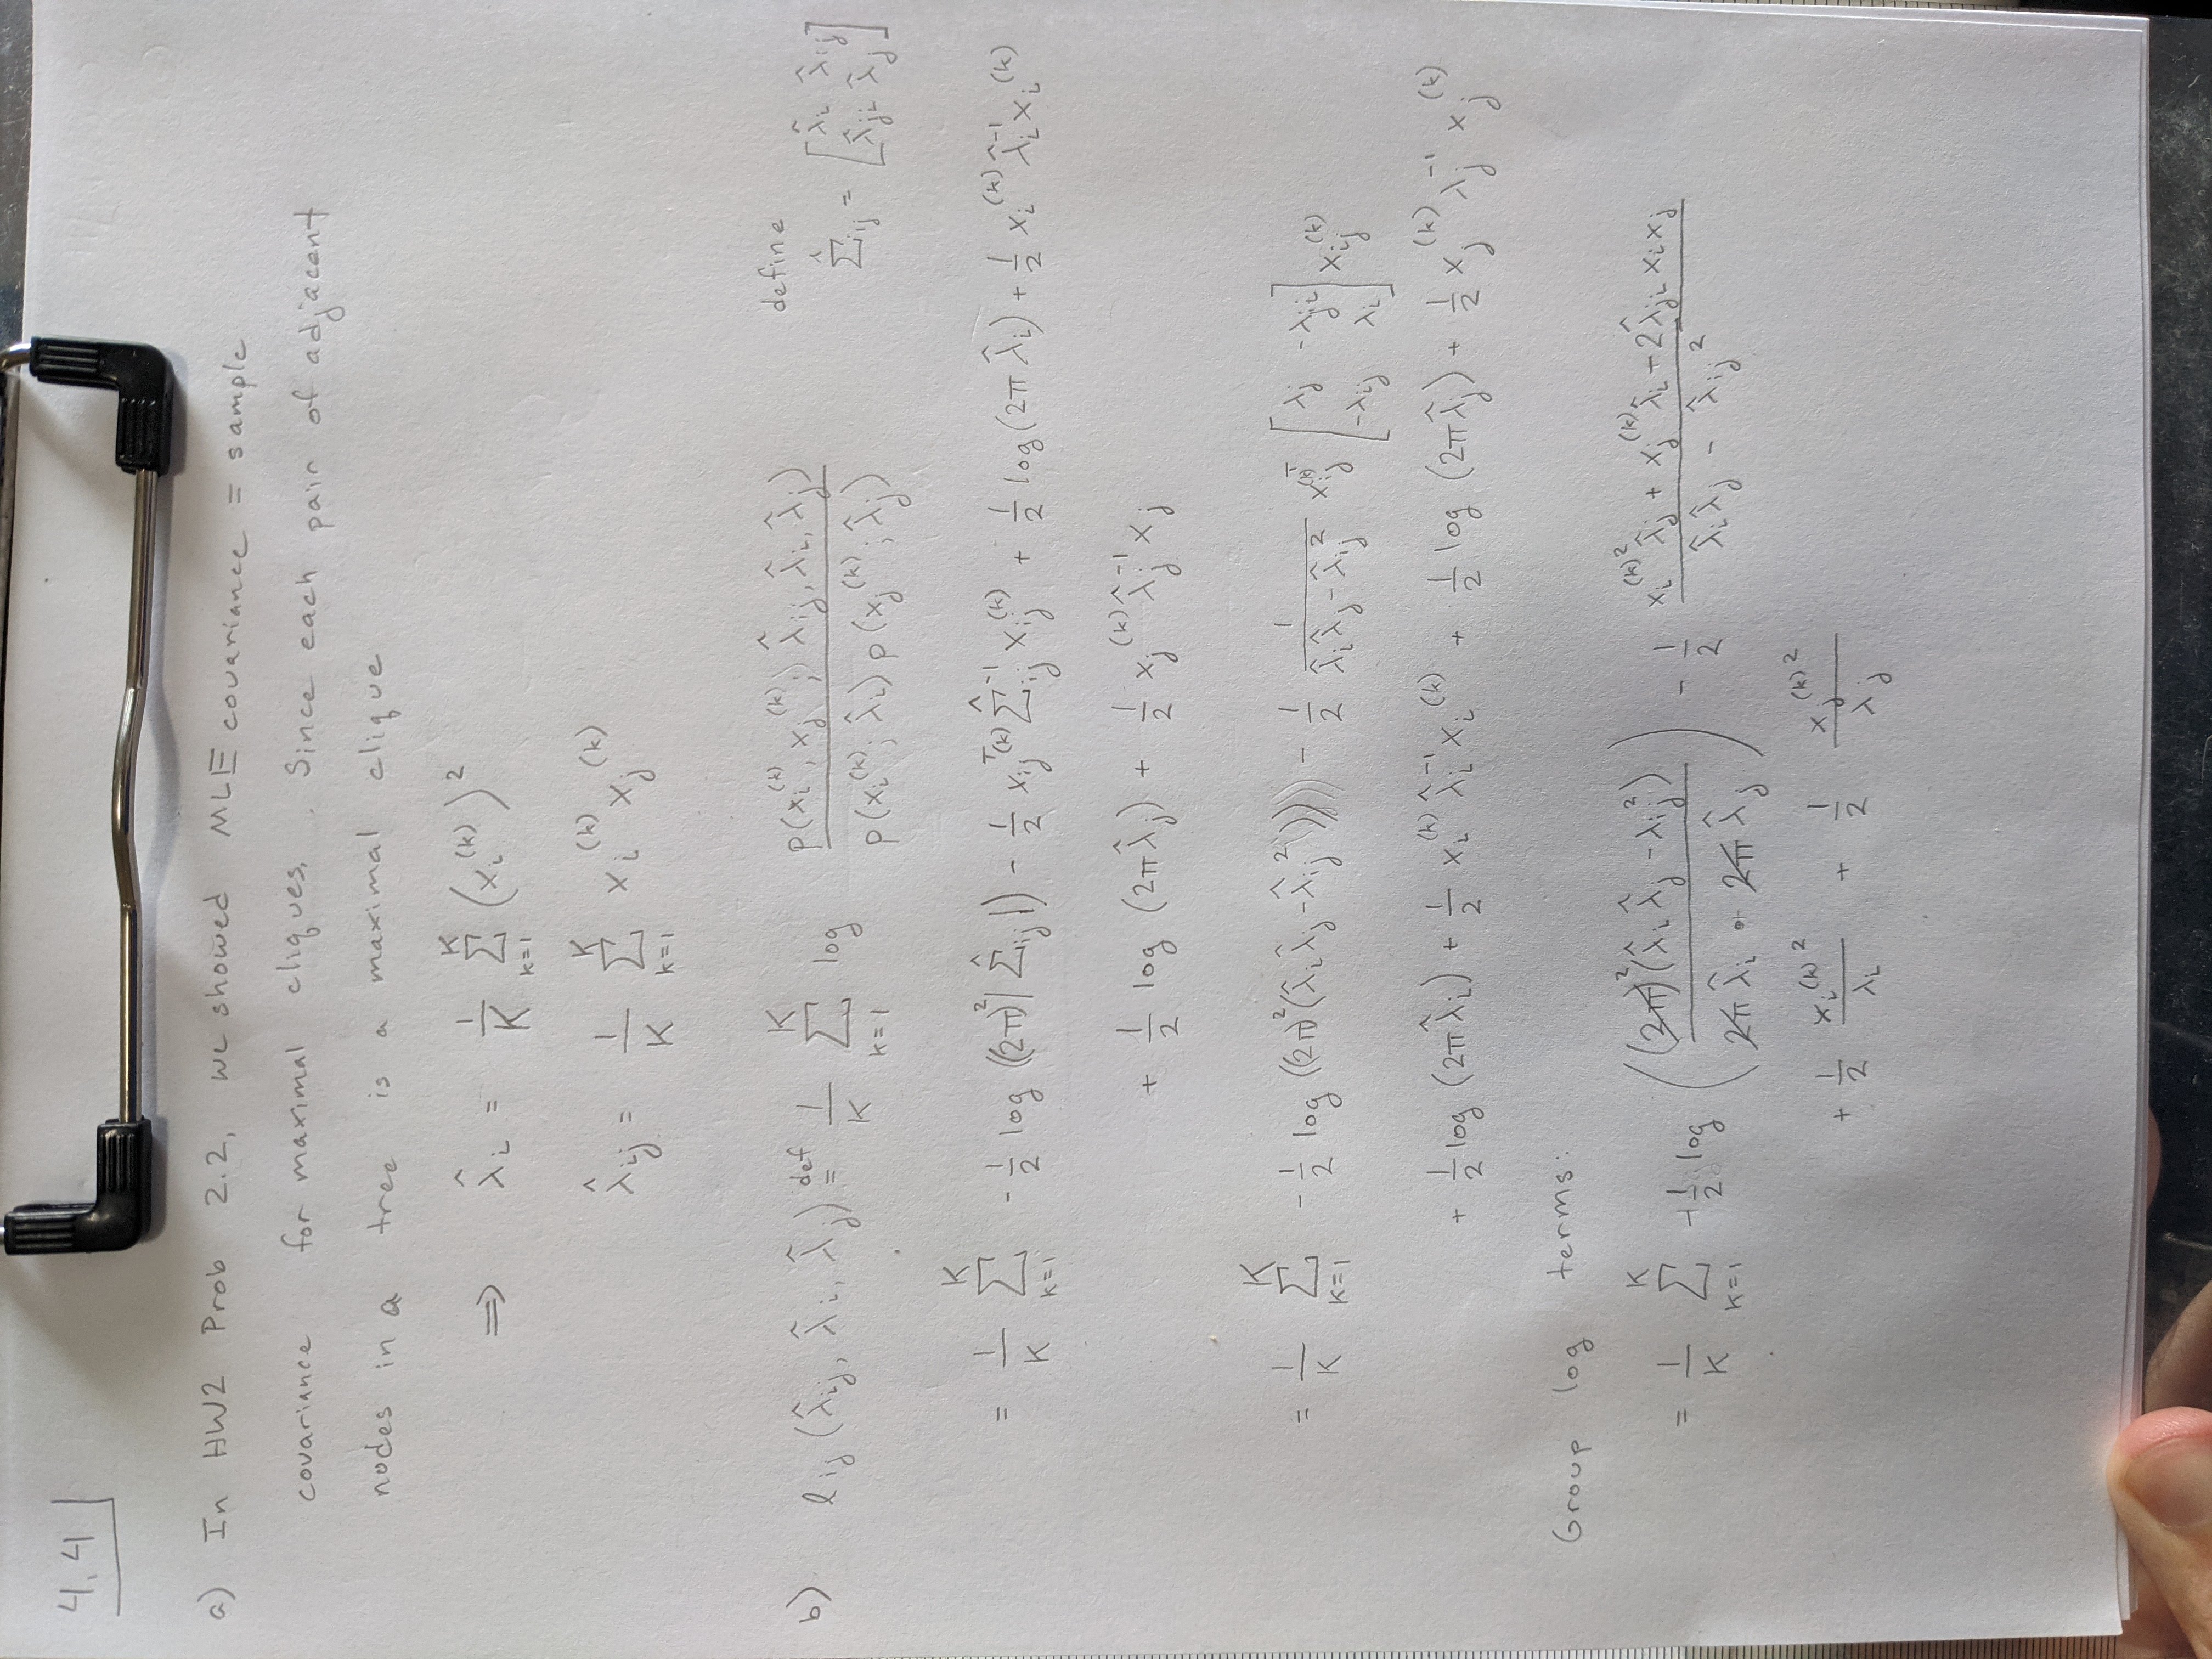 4.4
a) In HW2 Prob 2.2, we showed MLE covariance = sample
covariance for maximal cliques. Since each pair of adjacent
nodes in a tree is a maximal clique
⟹ λ̂_i = 1/K Σ_{k=1}^{K} (x_i^{(k)})^2
λ̂_{ij} = 1/K Σ_{k=1}^{K} x_i^{(k)} x_j^{(k)}
b) l_{ij}(λ̂_{ij}, λ̂_i, λ̂_j) def= 1/K Σ_{k=1}^{K} log p(x_i^{(k)}, x_j^{(k)}; λ̂_{ij}, λ̂_i, λ̂_j) / p(x_i^{(k)}; λ̂_i) p(x_j^{(k)}; λ̂_j) define Σ̂_{ij} = [λ̂_i λ̂_{ij}; λ̂_{ji} λ̂_j]
= 1/K Σ_{k=1}^{K} -1/2 log((2π)^2|Σ̂_{ij}|) - 1/2 x_{ij}^{T(k)} Σ̂_{ij}^{-1} x_{ij}^{(k)} + 1/2 log(2π λ̂_i) + 1/2 x_i^{(k)} λ̂_i^{-1} x_i^{(k)}
+ 1/2 log (2π λ̂_j) + 1/2 x_j^{(k)} λ̂_j^{-1} x_j
= 1/K Σ_{k=1}^{K} -1/2 log((2π)^2(λ̂_i λ̂_j - λ̂_{ij}^2)) - 1/2 1/(λ̂_i λ̂_j - λ̂_{ij}^2) x_{ij}^{(k)T} [λ_j -λ_{ji}; -λ_{ij} λ_i] x_{ij}^{(k)}
+ 1/2 log (2π λ̂_i) + 1/2 x_i^{(k)} λ̂_i^{-1} x_i^{(k)} + 1/2 log (2π λ̂_j) + 1/2 x_j^{(k)} λ_j^{-1} x_j^{(k)}
Group log terms:
= 1/K Σ_{k=1}^{K} -1/2 log ((2π)^2(λ̂_i λ̂_j - λ_{ij}^2) / 2π λ̂_i · 2π λ̂_j) - 1/2 (x_i^{(k)2} λ̂_j + x_j^{(k)} λ̂_i - 2 λ̂_{ji} x_i x_j) / (λ̂_i λ̂_j - λ̂_{ij}^2)
+ 1/2 x_i^{(k)2} / λ_i + 1/2 x_j^{(k)2} / λ_j